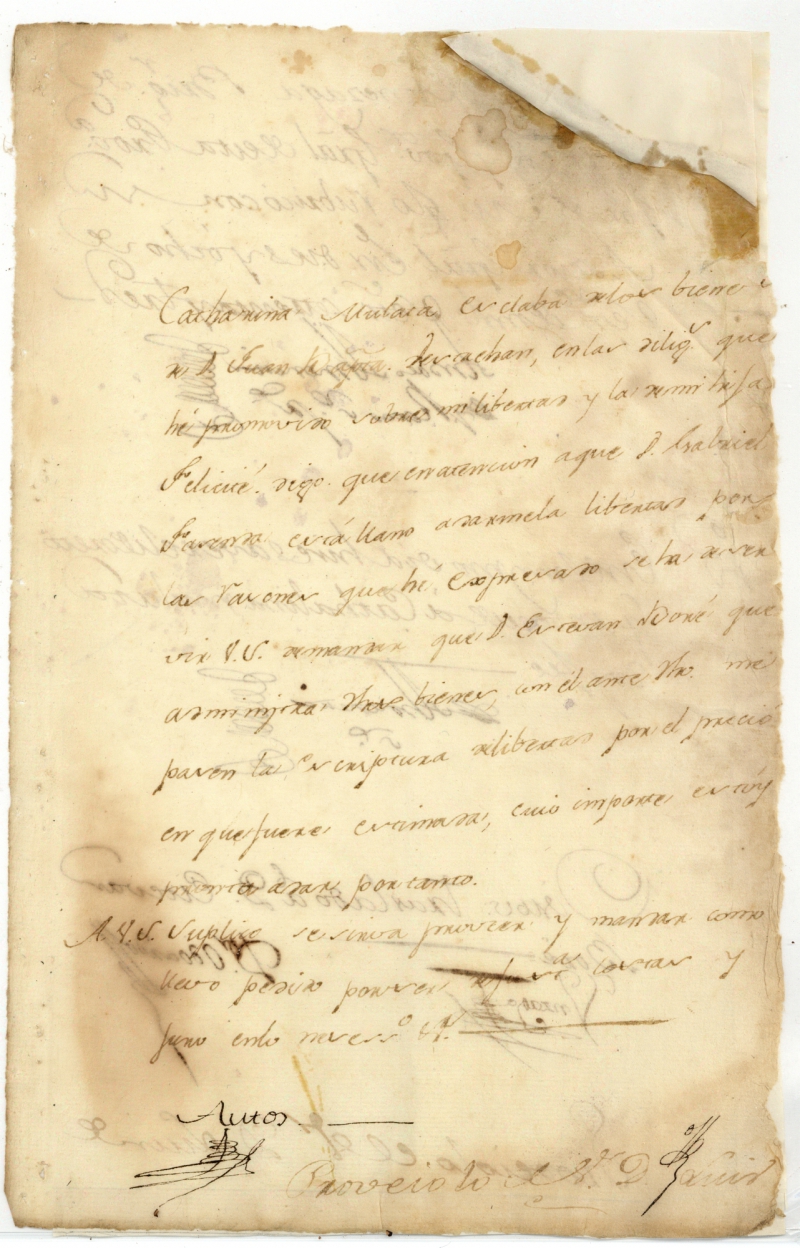 Catharina Mulata, esclaba delos biene
de D. Juan Bapta. Destrehan, en las dilig.s que
hé promovido sobre mi libertad y la de mi hija
Felicité. digo. que en atencion aque D. Grabriel
está llano adarmela libertad por
las rasones que hé expresado se ha de ser
vir V.S. demandar que D. Estevan Boré que
adminijtra dhos bienes, con él ante dho. me
pasen la escriptura delibertad por el preció
en que fuere estimada, cuio importe estóy
pronta adar, por tanto.
A. V.S. Suplico se sirva proveer y mandar como
llevo pedido por ser de just.a costas y
juro enlo necess.o &.a
Autos.
Proveio lo el S.r D. Luis